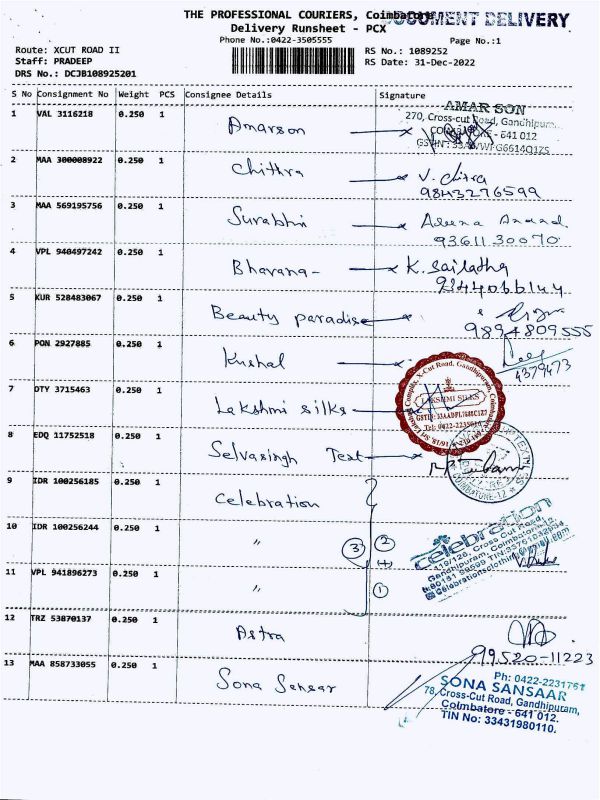 THE PROFESSIONAL COURIERS, Coimbatore
DOCUMENT DELIVERY
Delivery Runsheet - PCX
Phone No.:0422-3505555
Page No.:1
Route: XCUT ROAD II
RS No.: 1089252
Staff: PRADEEP
RS Date: 31-Dec-2022
DRS No.: DCJB108925201
S No Consignment No Weight PCS Consignee Details Signature
1 VAL 3116218 0.250 1 Amarson
AMAR SON
270, Cross-cut Road, Gandhipuram
COIMBATORE - 641 012
2 MAA 300008922 0.250 1 Chithra V. Chitra
9843276599
3 MAA 569195756 0.250 1 Surabhi
9361130070
4 VPL 940497242 0.250 1 Bhavana- K. Sailatha
9344066144
5 KUR 528483067 0.250 1 Beauty paradise
9894809555
6 PON 2927885 0.250 1 Kushal
4379473
7 DTY 3715463 0.250 1 Lakshmi silks
LAKSHMI SILKS
8 EDQ 11752518 0.250 1 Selvasingh Text
COIMBATORE-12
9 IDR 100256185 0.250 1 Celebration
10 IDR 100256244 0.250 1 "
3 2 + 1
celebration
419/120, Cross Cut Road,
Gandhipuram, Coimbatore-12
11 VPL 941896273 0.250 1 "
12 TRZ 53870137 0.250 1 Astra
99520-11223
13 MAA 858733055 0.250 1 Sona Sansar
Ph: 0422-2231761
SONA SANSAAR
78, Cross-Cut Road, Gandhipuram,
Coimbatore - 641 012.
TIN No: 33431980110.